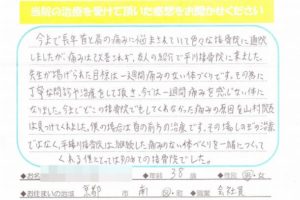 当院の治療を受けて頂いた感想をお聞かせください
今まで長年首と肩の痛みに悩まされていて色々な接骨院に通院
しましたが、痛みは改善されず、友人の紹介で平川接骨院に来ました。
先生が掲げられた目標は一週間痛みのない体づくりです。その為に
丁寧な問診や治療をして頂き、今では一週間痛みを感じない体に
なりました。今までどこの接骨院でもしてくれなかった痛みの原因を山村院長
は見つけてくれました。僕の場合は骨の前方の治療です。その場しのぎの治療
でなく、平川接骨院は、継続した痛みのない体づくりを一緒につくって
くれる僕にとっては初めての接骨院でした。
お名前 年齢 38 歳 性別 男・女
お住まいの地域 京都 南 区 職業 会社員